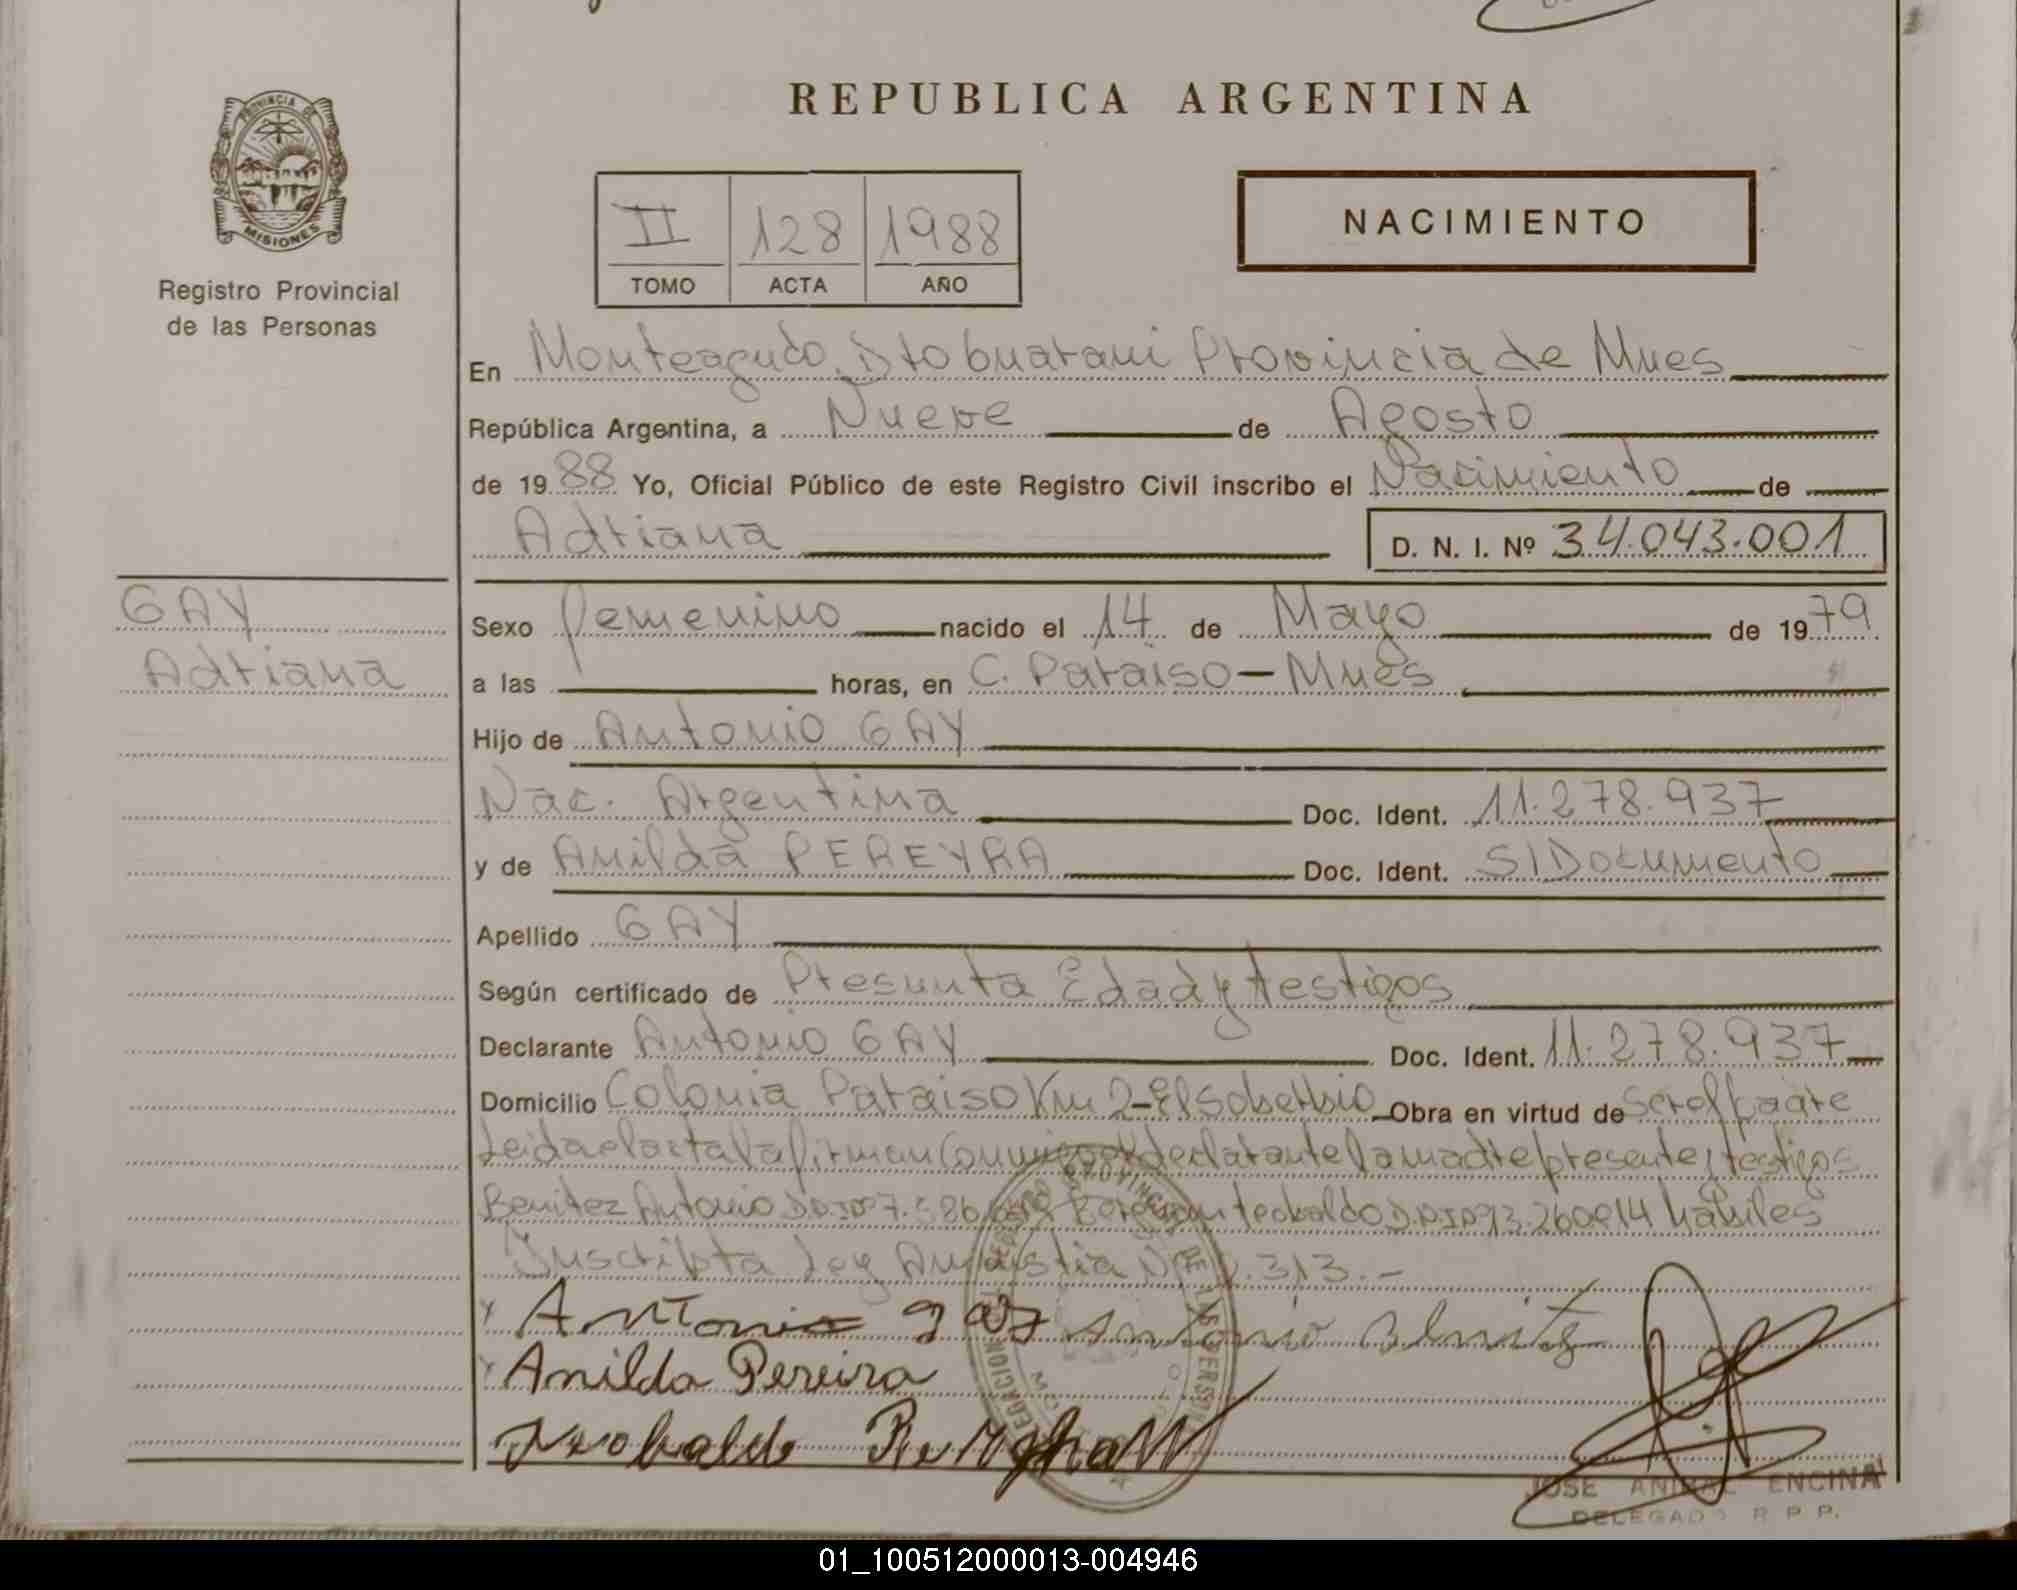 PROVINCIA DE
MISIONES
Registro Provincial
de las Personas
REPUBLICA ARGENTINA
II 128 1988
TOMO ACTA AÑO
NACIMIENTO
En Monteagudo, Dto Guarani Provincia de Mnes
República Argentina, a Nueve de Agosto
de 1988 Yo, Oficial Público de este Registro Civil inscribo el Nacimiento de
Adriana D. N. I. Nº 34.043.001
GAY
Adriana
Sexo femenino nacido el 14 de Mayo de 1979
a las horas, en C. Paraiso - Mnes
Hijo de Antonio GAY
Nac. Argentina Doc. Ident. 11.278.937
y de Anilda PEREYRA Doc. Ident. S/Documento
Apellido GAY
Según certificado de Presunta Edad y testigos
Declarante Antonio GAY Doc. Ident. 11.278.937
Domicilio Colonia Paraiso Km 2-El Soberbio Obra en virtud de Ser el padre
Leida el acta la firman Conmigo el declarante la madre presente y testigos
Benitez Antonio D.N.I.Nº 7. Teobaldo D.N.I.Nº 93.260.914 hábiles
Inscripta Ley Amnistia Nº .313.-
Antonio gay Antonio Benitez
Anilda Pereira
Teobaldo
JOSE ANIBAL ENCINA
DELEGADO R. P. P.
01_100512000013-004946